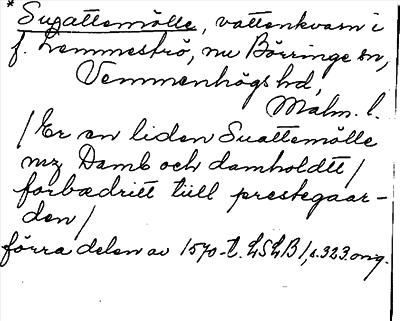 *Suattemölle, vattenkvarn i
f. Lemmeströ, nu Börringe sn,
Vemmenhögs hd,
Malm. l.
/Er en liden Suattemölle
mz Damb och damholdtt/
forbædritt till prestegaar-
den/
förra delen av 1570-t. LSLB1, s. 323. orig.